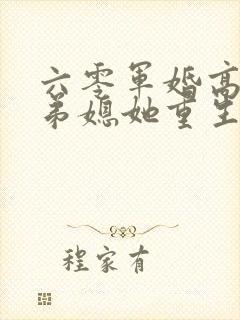 六零军婚高
弟媳她重生
程家有